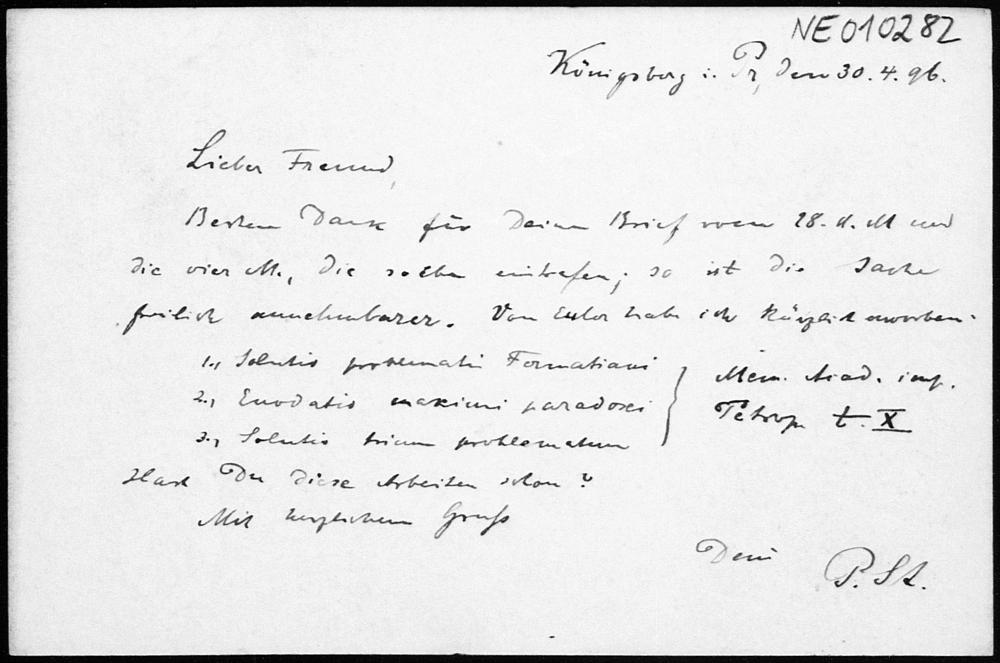 NE010282
Königsberg i. Pr, den 30. 4. 96.
Lieber Freund,
Besten Dank für Deinen Brief vom 28. d. M und
die vier M., die soeben eintrafen; so ist die Sache
freilich annehmbarer. Von Euler habe ich kürzlich erworben:
1., Solutio problematis
2., Enodatio maximi paradoxi
3., Solutio trium problematum
Mém. Acad. imp.
Petrop. t. X
Hast Du diese Arbeiten schon?
Mit herzlichem Gruß
Dein
P. St.